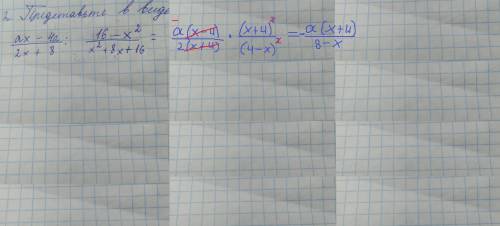 2. Представьте в виде
(ax - 4a)/(2x + 8) : (16 - x²)/(x² + 8x + 16) = - a(x-4)/2(x+4) · (x+4)²/(4-x)² = - a(x+4)/(8-x)